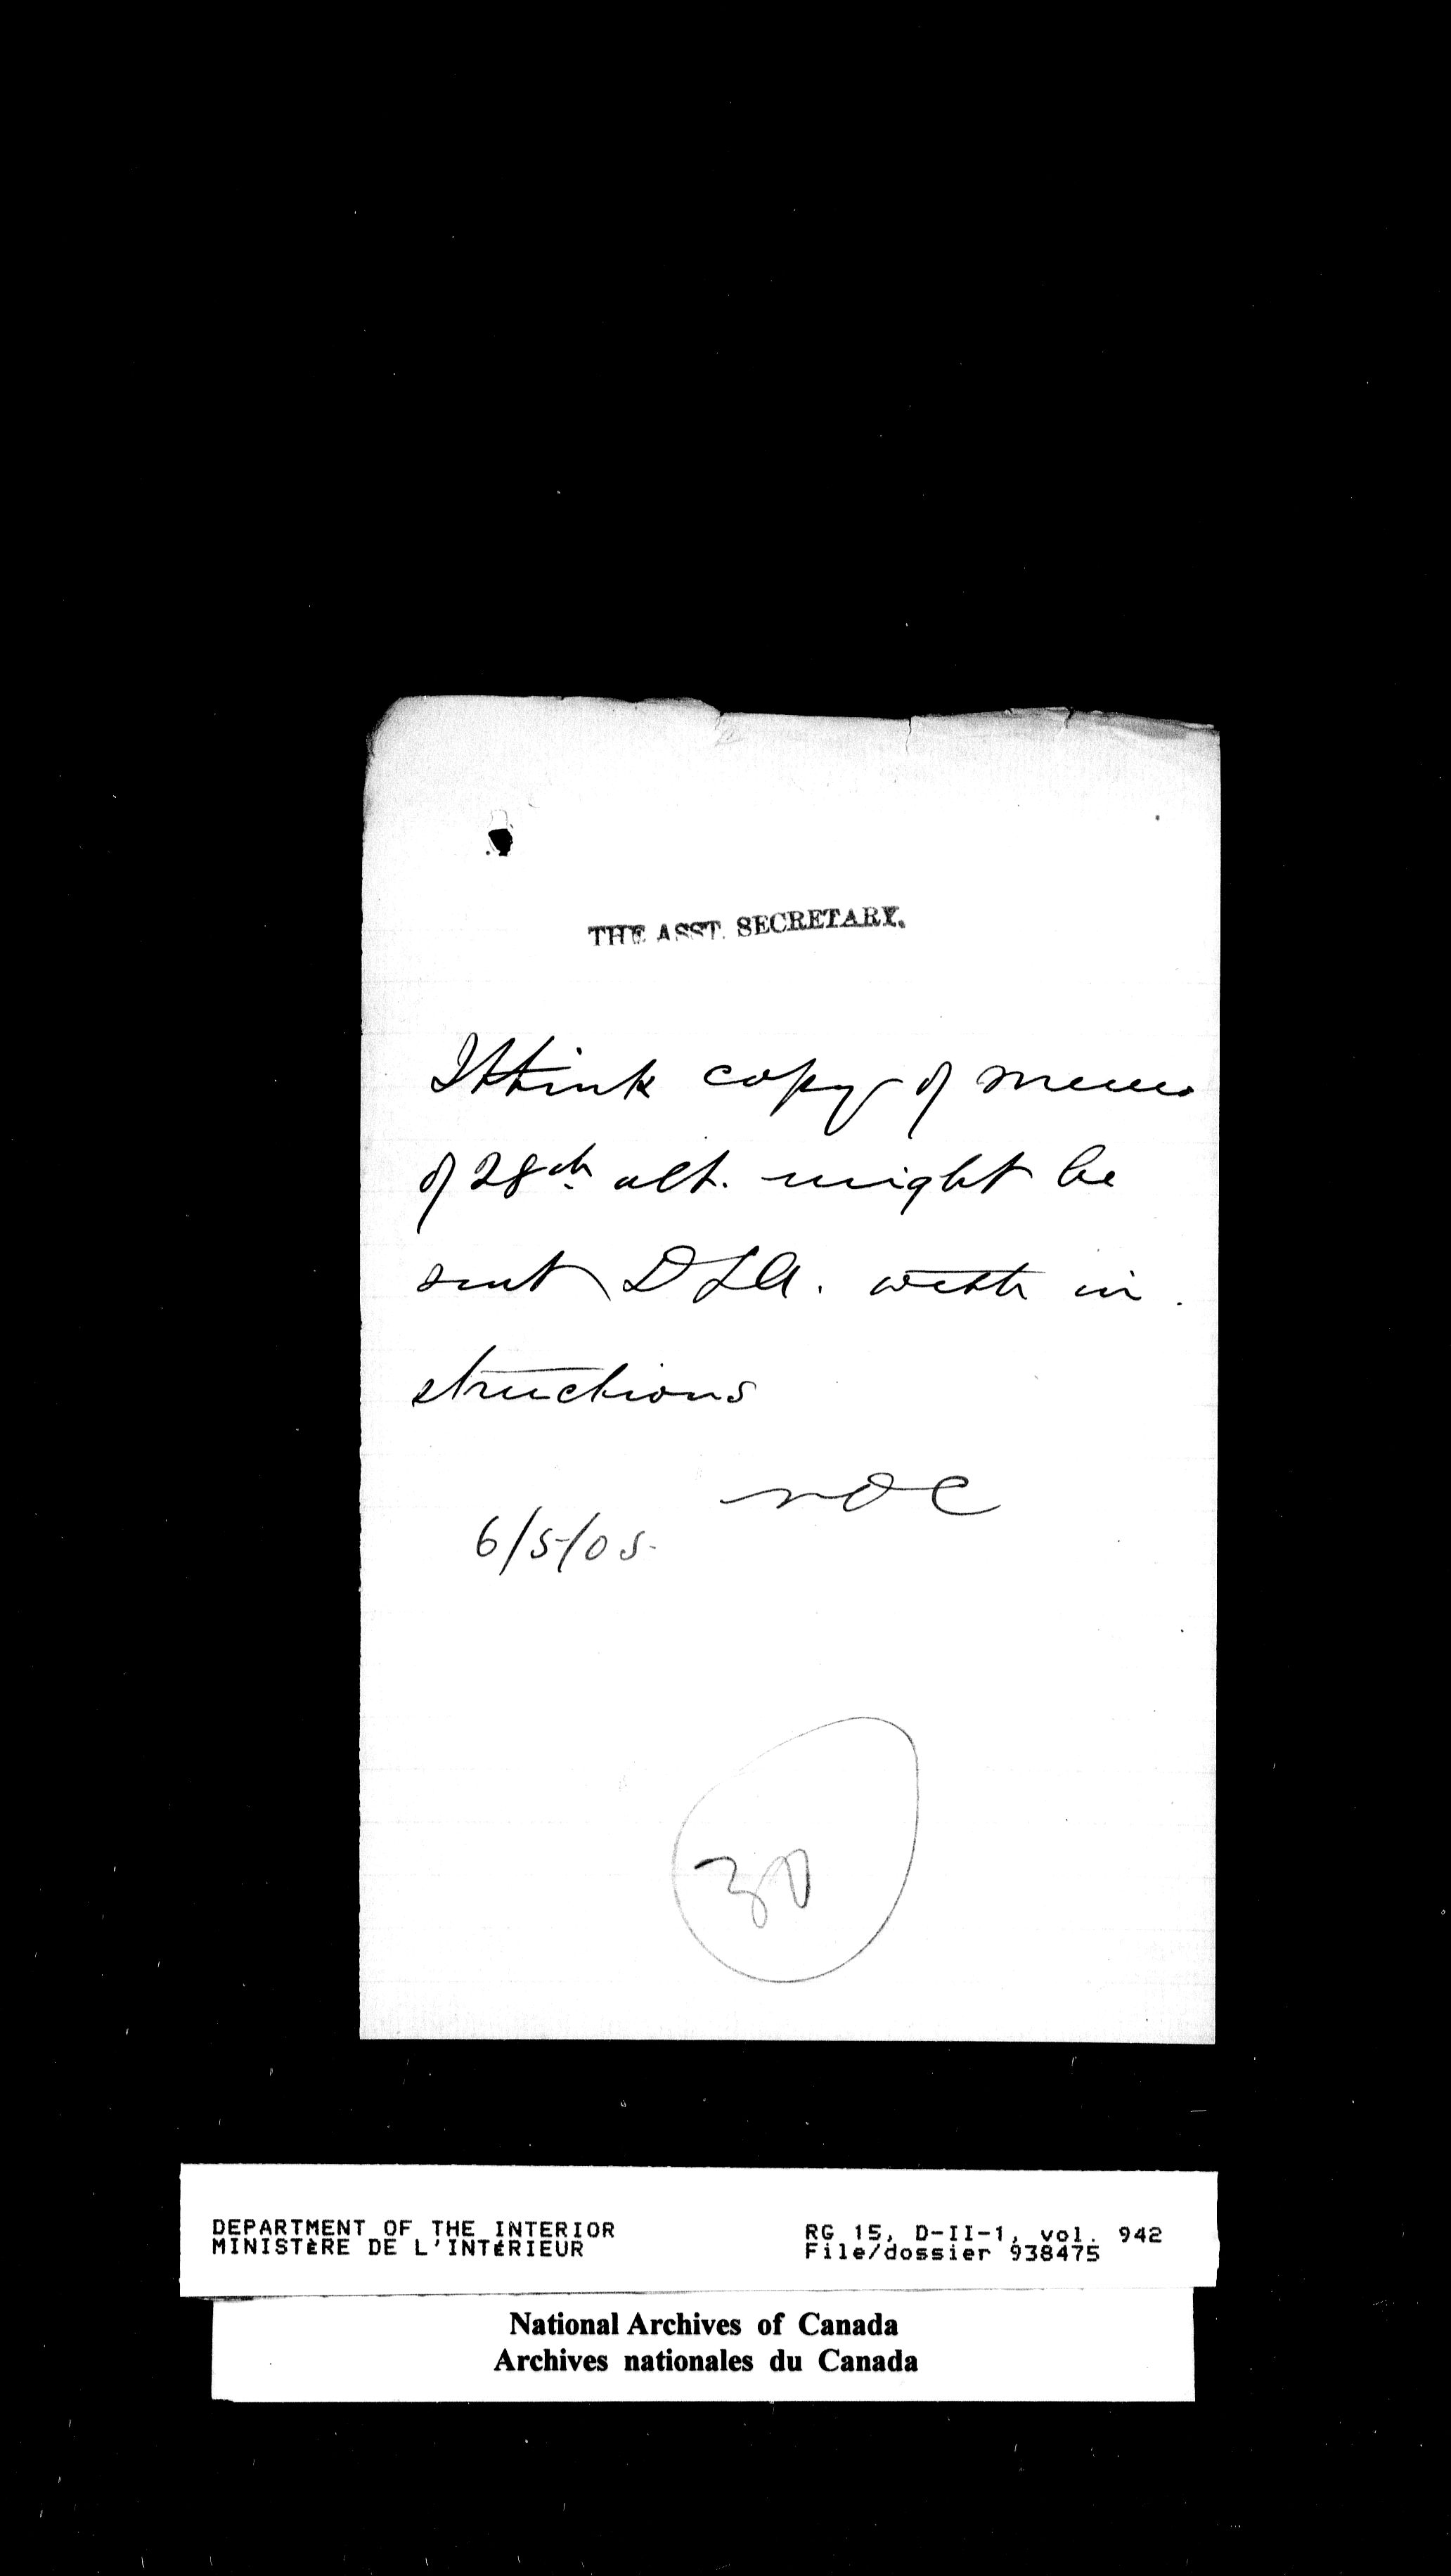 THE ASST. SECRETARY.
I think copy of memo
of 28th ult. might be
sent D L A. with in
structions
NOC
6/5/05.
30
DEPARTMENT OF THE INTERIOR
MINISTÈRE DE L'INTÉRIEUR
RG 15, D-II-1, vol. 942
File/dossier 938475
National Archives of Canada
Archives nationales du Canada